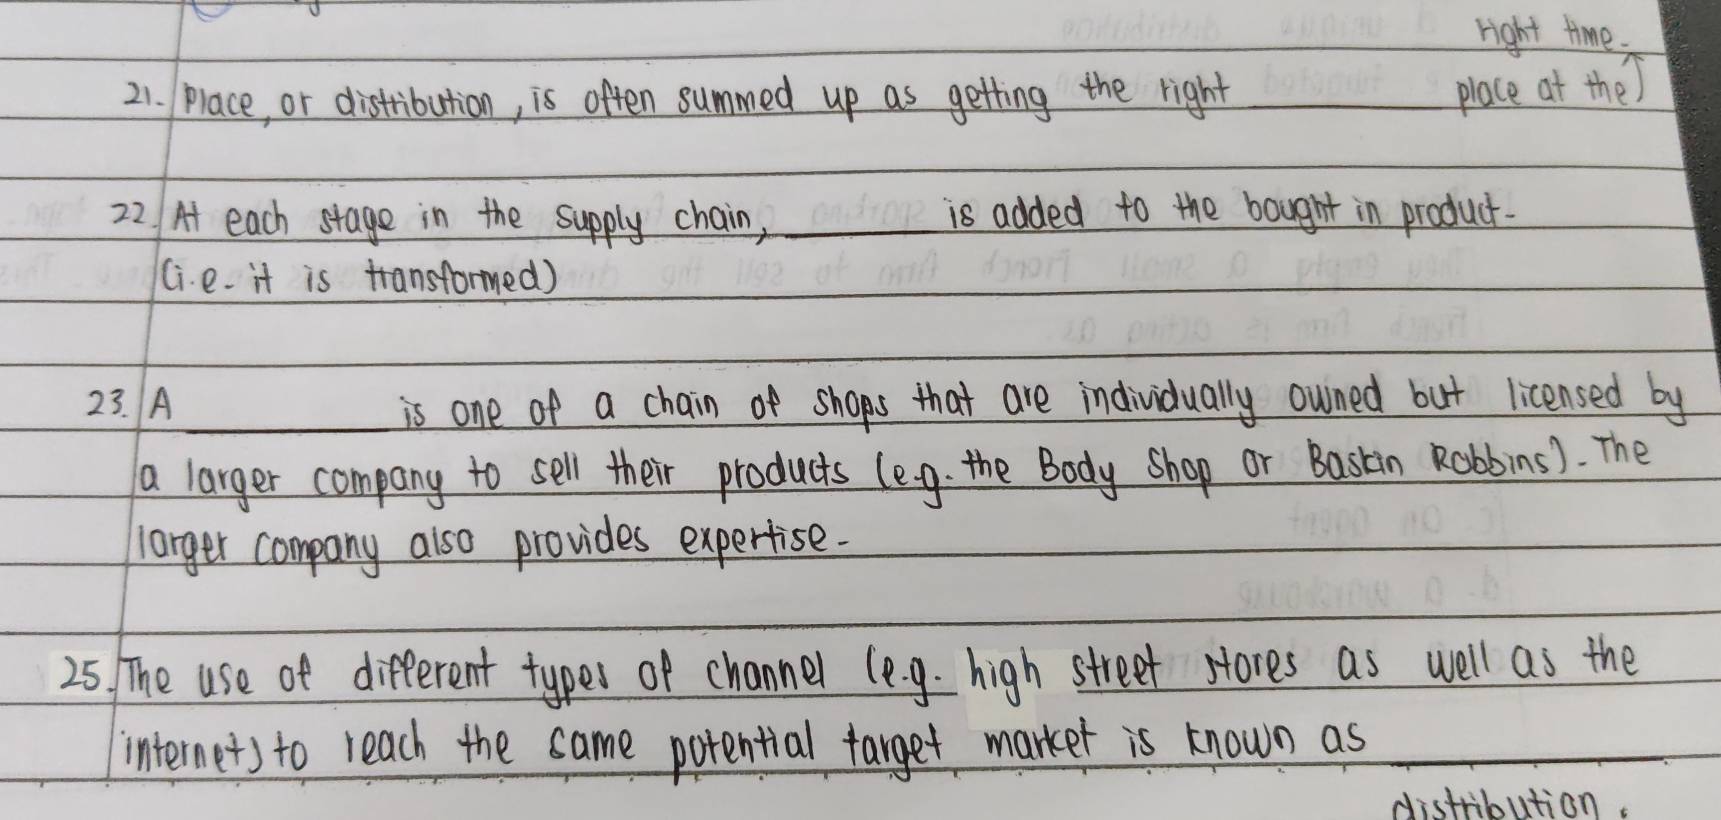 right time.
21. Place, or distribution, is often summed up as getting the right ________ place at the
22. At each stage in the supply chain, ________ is added to the bought in product.
(i.e. it is transformed)
23. A ________ is one of a chain of shops that are individually owned but licensed by
a larger company to sell their products (e.g. the Body Shop or Baskin Robbins). The
larger company also provides expertise.
25. The use of different types of channel (e.g. high street stores as well as the
internet) to reach the same potential target market is known as ________
distribution.